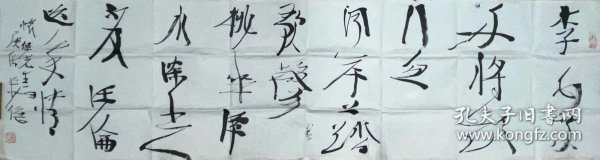 李白乘
舟将欲
行忽
闻岸上踏
歌声
桃花潭
水深千尺
及汪伦
送我情
孔夫子旧书网
www.kongfz.com